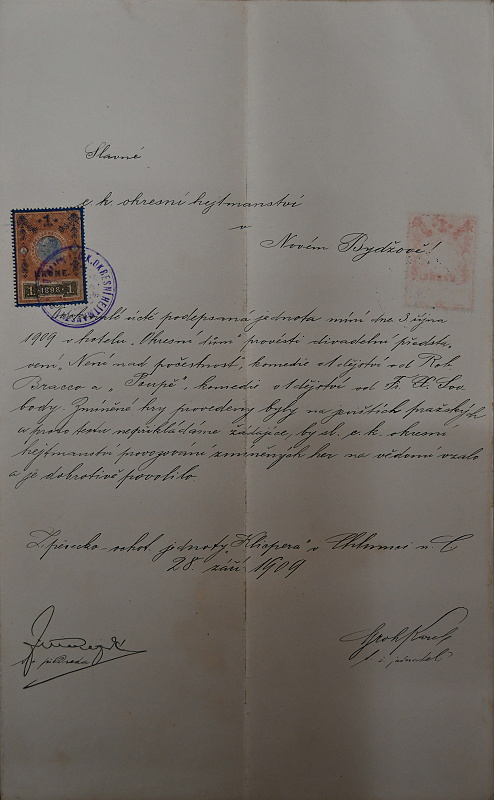 Slavné
c. k. okresní hejtmanství
v
Novém Bydžově!
úctě podepsaná jednota míní dne 3. října
1909 v hotelu „Okresní dům" provésti divadelní představ„
vení „Není nad počestnost", komedie o 1 dějství od Rob.
Bracco a „Poupě", komedie o 1 dějství od Fr. X. Svo„
body. Zmíněné hry provedeny byly na pražských
a proto textu nepřikládáme žádajíce, by sl. c. k. okresní
hejtmanství provozování zmíněných her na vědomí vzalo
a je dobrotivě povolilo.
Z pěvecko-ochot. jednoty „Klicpera" v Chlumci n. C
28. září 1909
předseda
Groh Karel
jednatel
1
1 1898 1
C. K. OKRESNÍ HEJTMAN